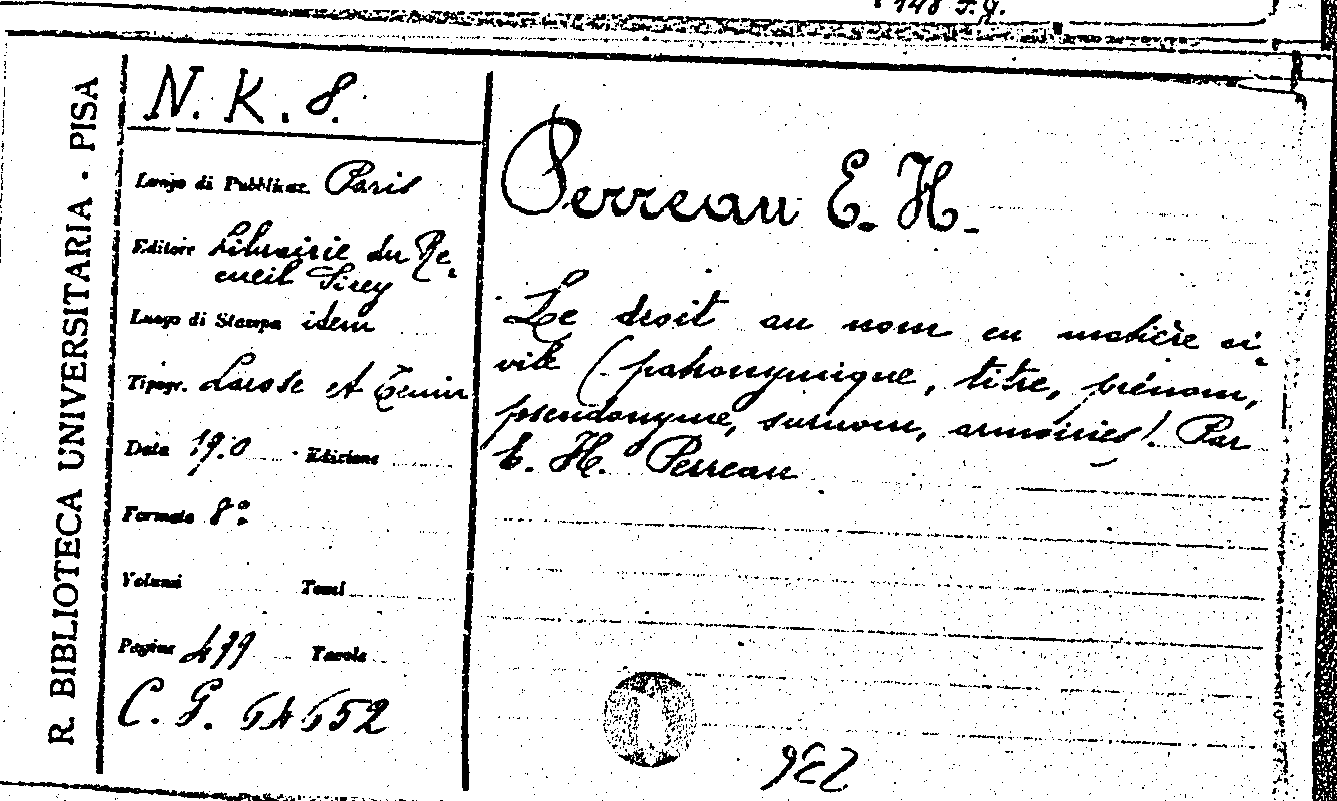 148 F.G.
R. BIBLIOTECA UNIVERSITARIA - PISA
N. K. 8.
Luogo di Pubblicaz. Paris
Editore Librairie du Re-
cueil Sirey
Luogo di Stampa idem
Tipogr. Larose et Tenin
Data 1910 Edizione
Formato 8°
Volumi Tomi
Pagine 499 Tavole
C. G.
Perreau E. H.
Le droit au nom en matière ci-
vile (patronymique, titre, prénom,
pseudonyme, surnom, armoiries). Par
E. H. Perreau